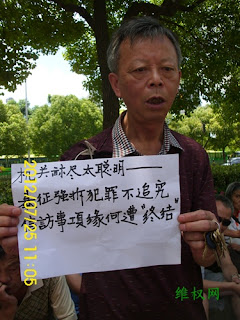 太聪明——
征强拆犯罪不追究
访事项缘何遭“终结”
2012/07/25 11:05
维权网